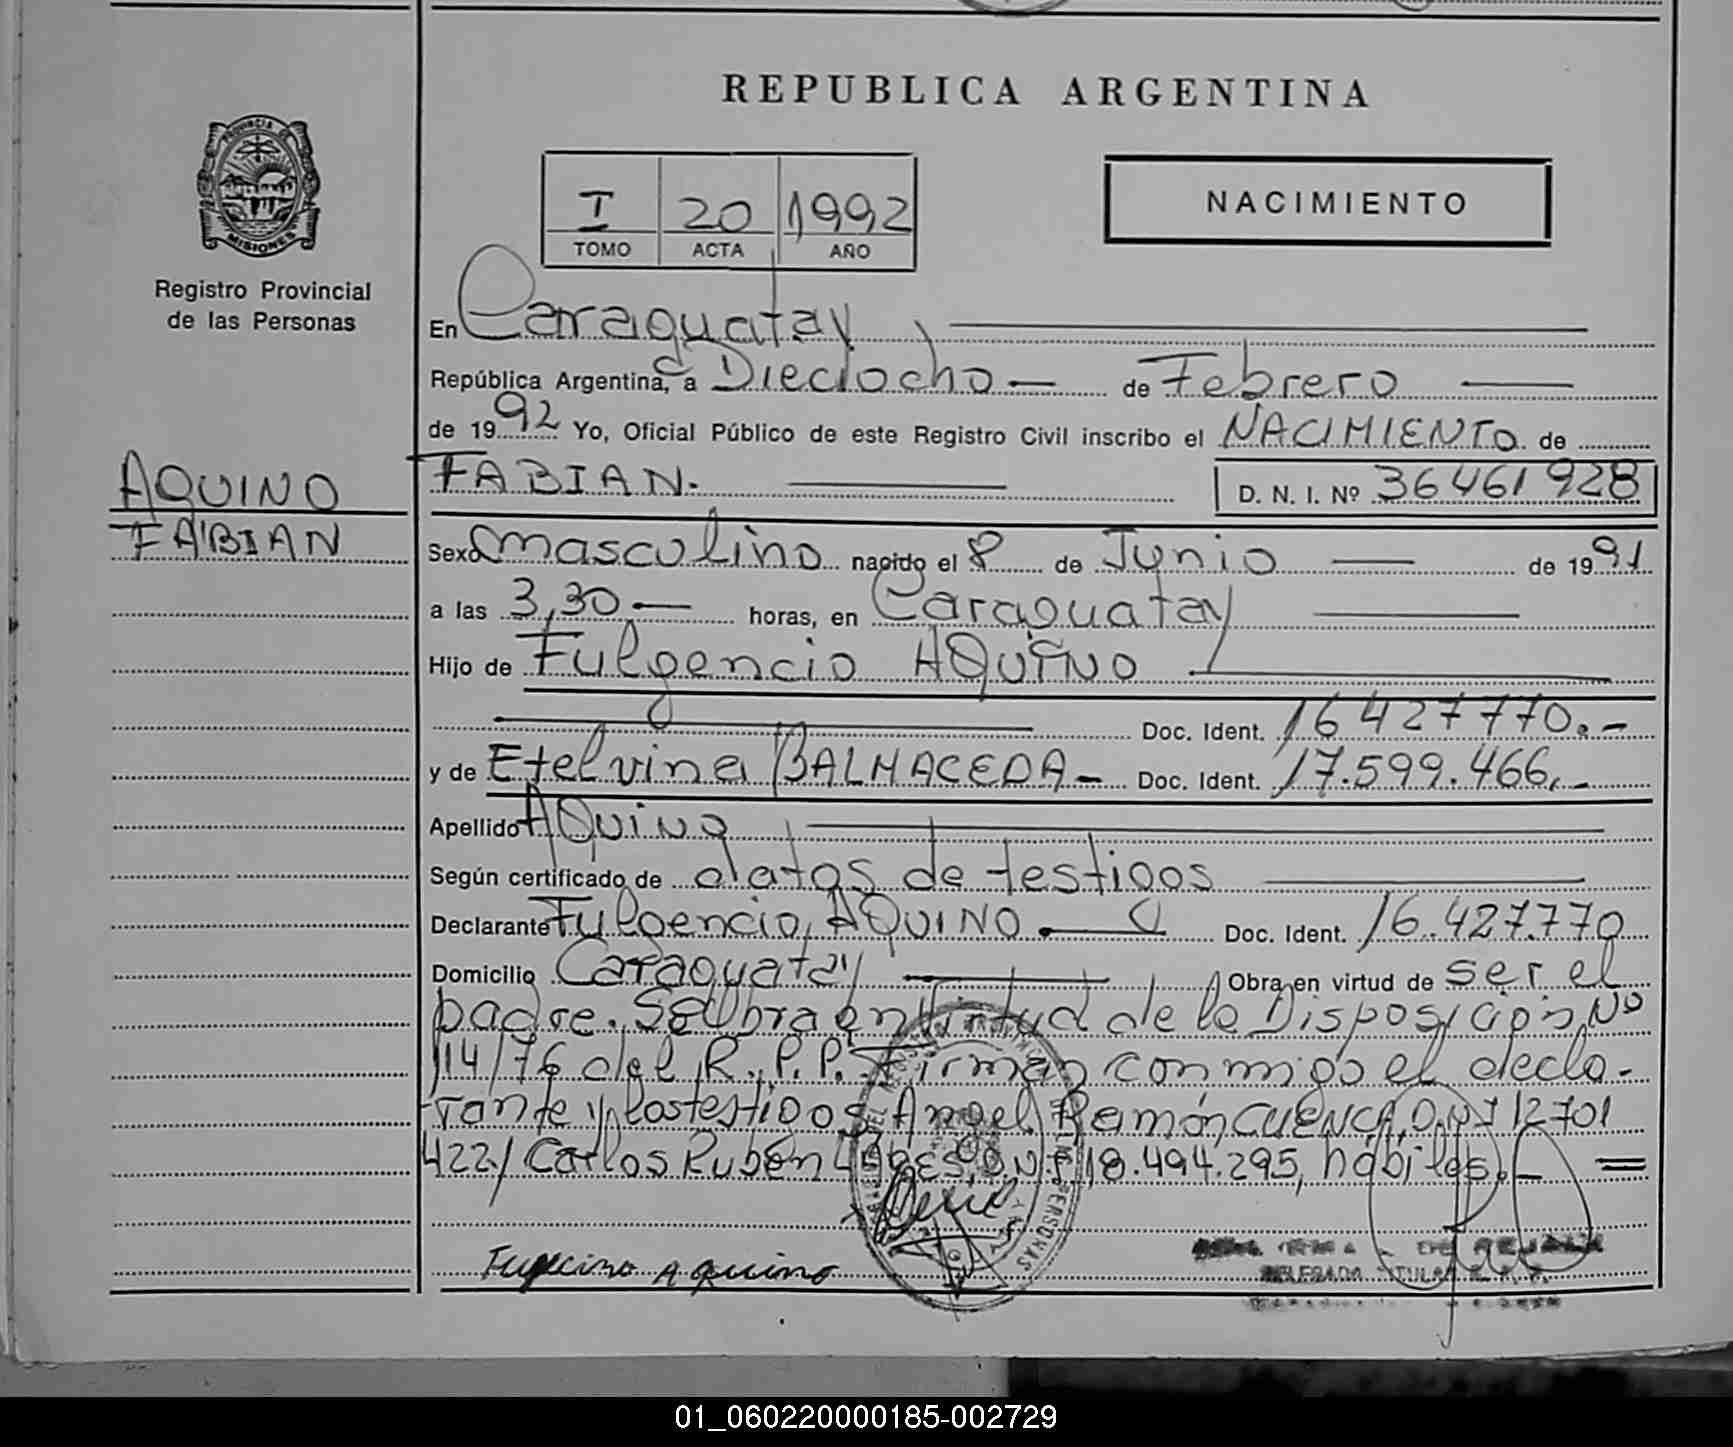 REPUBLICA ARGENTINA
PROVINCIA DE
MISIONES
Registro Provincial
de las Personas
I 20 1992
TOMO ACTA AÑO
NACIMIENTO
En Caraguatay
República Argentina, a Dieciocho de Febrero
de 1992 Yo, Oficial Público de este Registro Civil inscribo el NACIMIENTO de
AQUINO
FABIAN
FABIAN. D. N. I. Nº 36461928
Sexo masculino nacido el 8 de Junio de 1991
a las 3,30 horas, en Caraguatay
Hijo de Fulgencio AQUINO
Doc. Ident. 16427770.-
y de Etelvina BALMACEDA- Doc. Ident. 17.599.466,-
Apellido AQUINO
Según certificado de datos de testigos
Declarante Fulgencio AQUINO Doc. Ident. 16.427.770
Domicilio Caraguatay Obra en virtud de ser el
padre. Se Obra en Virtud de la Disposición Nº
114/76 del R.P.P. Firman conmigo el decla-
rante y los testigos Angel Ramón CUENCA D.N.I 12701
422/ Carlos Rubén D.N.I 18.494.295, hábiles.-
Aquino
PERSONAS
DELEGADA TITULAR R. P. P.
01_060220000185-002729